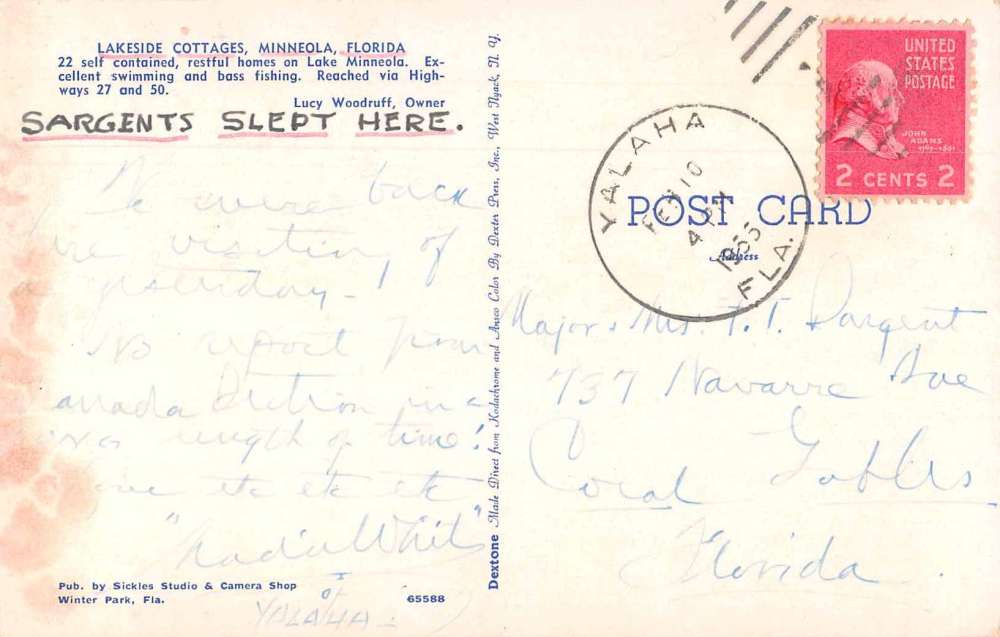 LAKESIDE COTTAGES, MINNEOLA, FLORIDA
22 self contained, restful homes on Lake Minneola. Ex-
cellent swimming and bass fishing. Reached via High-
ways 27 and 50.
Lucy Woodruff, Owner
SARGENTS SLEPT HERE.
were back
visiting of
yesterday -
No report from
anada Action in a
length of time!
etc etc etc
"Radio
of
YALAHA -
Pub. by Sickles Studio & Camera Shop
Winter Park, Fla.
65588
Dextone Made Direct from Kodachrome and Ansco Color By Dexter Press, Inc., West Nyack, N. Y.
UNITED
STATES
POSTAGE
JOHN
ADAMS
1797-1801
2 CENTS 2
YALAHA
FEB 10
4 PM
1955
FLA.
POST CARD
Address
Major & Mrs. T. T. Sargent
737 Navarre Ave
Coral Gables
Florida